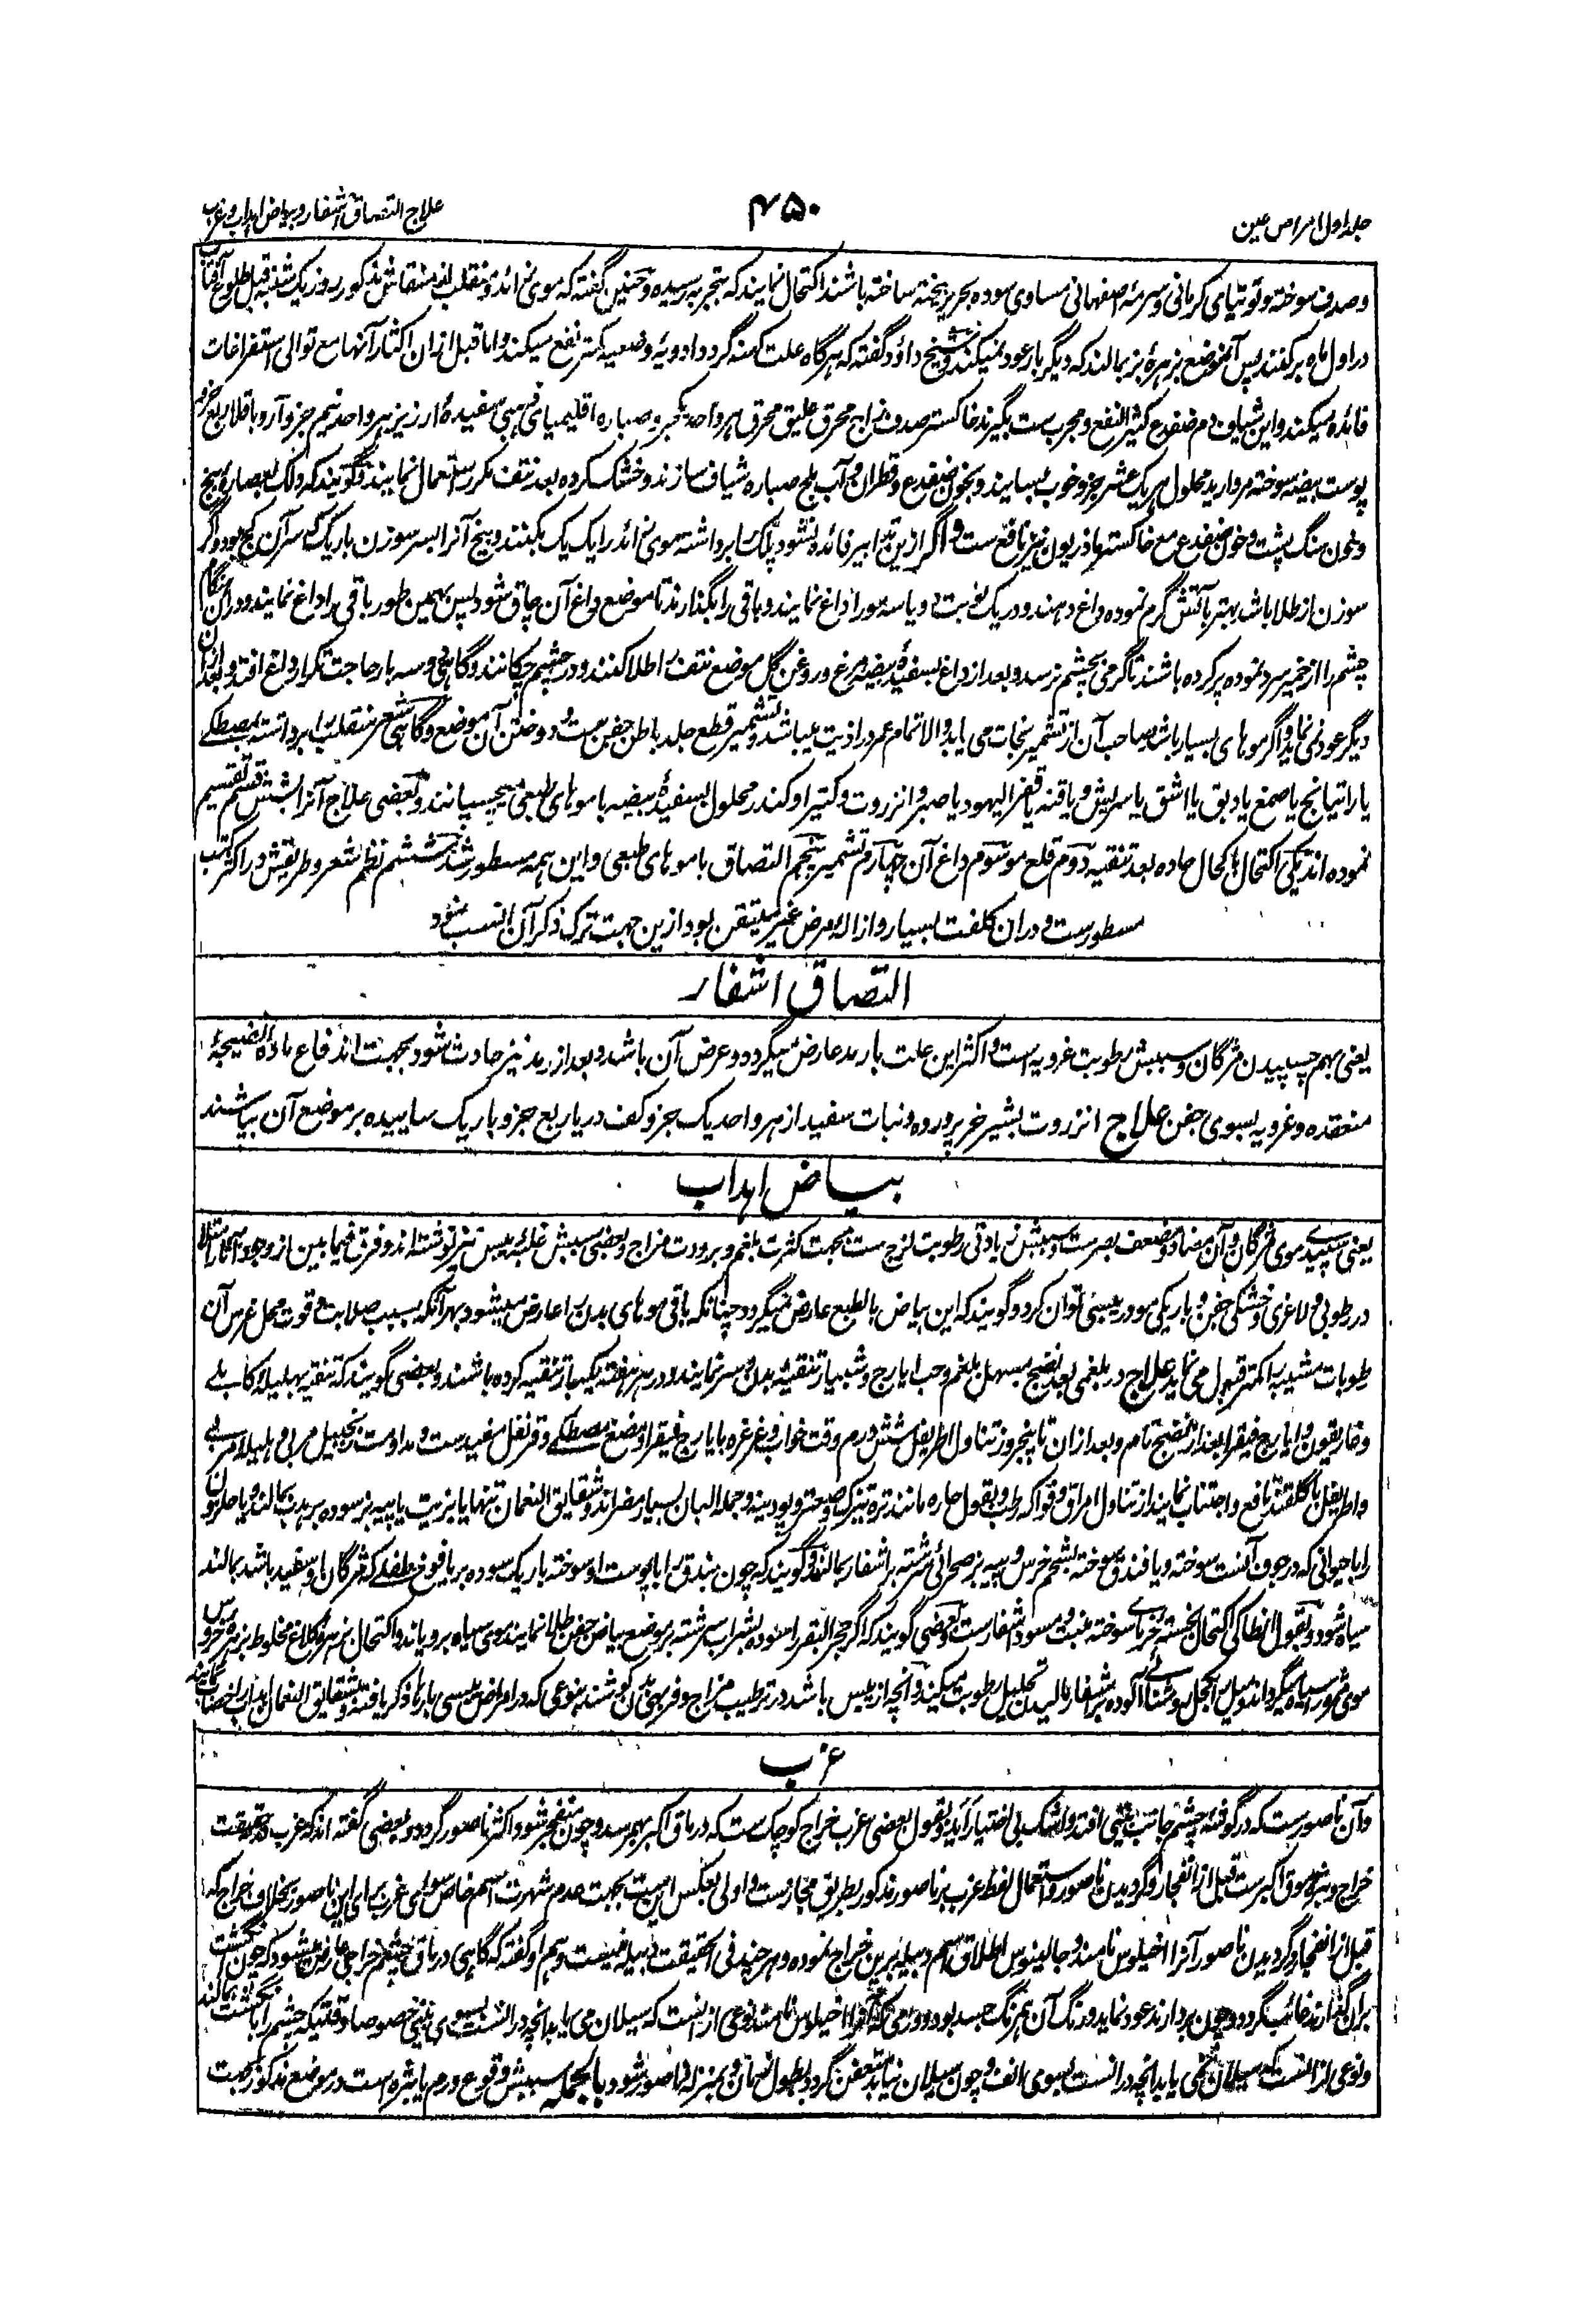 جلد اول امراض عین
۴۵۰
علاج التصاق اشفار و بیاض اہداب و غرب
و صدف سوخته و توتیای کرمانی و سرمۀ اصفہانی مساوی سوده بحریر بیخته ساخته باشند اکتحال نمایند که بتجربه رسیده و حنین گفته که موی زائد و منقلب از منقاش مذکور روز یک شنبه قبل طلوع آفتاب
در اول ماه بر کنند پس آنموضع بزهرۀ بز بمالند که دیگر بار عود نمیکند و شیخ داؤد گفته که هرگاه علت کهنه گردد ادویۀ وضعیه کمتر نفع میکنند و اما قبل ازان اکثار آنها مع توالی استفراغات
فائده میکند و این شیاف دم ضفدع کثیر النفع و مجرب ست بگیرند خاکستر صدف زاج محرق علیق محرق هر واحد یکجزو صباره اقلیمیای فضی سفیدۀ ارزیز هر واحد نیم جزو آرد باقلا ربع جزو
پوست بیضه سوخته مروارید محلول هر یک عشر جزو خوب بسایند و بخون ضفدع و قطران و آب بلح صباره شیاف سازند و خشک کرده بعد نتف مکرر استعمال نمایند و گویند که دلک بعصارۀ بنج
و خون سنگ پشت و خون ضفدع مع خاکستر آذریون نیز نافع ست و اگر ازین تدابیر فائده نشود پلک را برداشته موی زائد را یک یک بکنند و بیخ آنرا بسر سوزن باریک که سر آن کج بود و اگر
سوزن از طلا باشد بهتر بآتش گرم نموده داغ دهند و در یک نوبت دو یا سه مو را داغ نمایند و باقی را بگذارند تا موضع داغ آن چاق شود پس بهمین طور باقی را داغ نمایند و دران هنگام
چشم را از خمیر سرد نموده پر کرده باشند تا گرمی بچشم نرسد و بعد از داغ بسفیدۀ بیضه مرغ و روغن گل موضع نتف را طلا کنند و در چشم چکانند و گاهی دو سه بار حاجت تکرار داغ افتد و بعد ازان
دیگر عود نمی نماید و اگر موهای بسیار باشد صاحب آن از تشمیر نجات می یابد و الا تمام عمر در اذیت میباشد و تشمیر قطع جلد باطن جفن ست و دوختن آن موضع و گاهی شعر منقلب را برداشته بمصطکے
یا راتیانج یا صمغ یا دبق یا اشق یا سریش و یا قنه یا قفر الیهود یا صبر و انزروت و کتیرا و کندر محلول بسفیدۀ بیضه با موهای طبعی میچسپانند و بعضی علاج آنرا بشش قسم تقسیم
نموده اند یکی اکتحال باکحال حاده بعد تنقیه دوم قلع مو سوم داغ آن چهارم تشمیر پنجم التصاق با موهای طبعی و این همه مسطور شد ششم نظم شعر و طریقش در اکثر کتب
مسطور ست و دران کلفت بسیار و ازالۀ مرض غیر متیقن بود ازین جهت ترک ذکر آن انسب نمود
التصاق اشفار
یعنی بهم چسپیدن مژگان و سببش رطوبت غرویه است و اکثر این علت بارمد عارض میگردد و عرض آن باشد و بعد از رمد نیز حادث شود بجهت اندفاع ماده النضیجۀ
منعقده و غرویه بسوی جفن علاج انزروت بشیر خر پرورده و نبات سفید از هر واحد یک جزو کف دریا ربع جزو باریک ساییده بر موضع آن بپاشند
بیاض اہداب
یعنی سپیدے موی مژگان و آن مضاد و مضعف بصر ست و سببش زیادتی رطوبت لزج ست بجهت کثرت بلغم و برودت مزاج و بعضی سببش غلبۀ یبس نیز نوشته اند و فرق فیمابین از وجود آثار امتلا
در رطوبی و لاغری و خشکی جفن و باریکی مو در یبسی توان کرد و گویند که این بیاض بالطبع عارض نمیگردد چنانکه باقی موهای بدن را عارض میشود بهر آنکه بسبب صلابت و قوت محل غرس آن
رطوبات مشیبه را کمتر قبول می نماید علاج در بلغمی بعد نضج مسهل بلغم و حب ایارج و شبیار تنقیۀ بدن و سر نمایند و در هر هفته یکبار تنقیه کرده باشند و بعضی گویند که تنقیه بهلیلۀ کابلے
و غاریقون و ایارج فیقرا بعد از نضج تام و بعد ازان تا پنجروز تناول اطریفل شش درم وقت خواب و غرغره بایارج فیقرا و مضغ مصطکے و قرنفل مفید ست و مداومت زنجبیل مربی و هلیلۀ مربے
و اطریفل با گلقند نافع و اجتناب نمایند از تناول امراق و فواکه رطب و بقول حاره مانند تره تیزک و صعتر و پودینه و جمله البان بسیار مضر اند و شقایق النعمان تنها یا بزیت یا پیه بز سوده بر هدب بمالند و یا حلزون
را با حیوانی که در جوف آنست سوخته و یا فندق سوخته بشحم خرس و پیه بز صحرائی سرشته بر اشفار بمالند و گویند که چون بندق را با پوست او سوخته باریک سوده بر یافوخ طفلے که مژگان او سفید باشد بمالند
سیاه شود و بقول انطاکی اکتحال بخستۀ خرمای سوخته منبت و مسود اشفار ست و بعضی گویند که اگر حجر البقر را سوده بشراب سرشته بر موضع بیاض جفن طلا نمایند موی سیاه برویاند و اکتحال بزهرۀ کلاغ مخلوط بزهرۀ خروس
غرب
و آن ناصور ست که در گوشۀ چشم جانب بینی افتد و اشک بی اختیار آید و بقول بعضی غرب خراج کوچک ست که در ماق اکبر بهم رسد و چون منفجر شود اکثر ناصور گردد و بعضی گفته اند که غرب در حقیقت
خراج و بثره موق اکبر ست قبل از انفجار و گردیدن ناصور و استعمال لفظ غرب بر ناصور مذکور بطریق مجاز ست و اولی بعکس این ست بجهت عدم شهرت اسم خاص سوای غرب برای این ناصور بخلاف خراج که
قبل از انفجار و گردیدن ناصور آنرا اخیلوس نامند و جالینوس اطلاق اسم دبیله برین خراج نموده و هر چند فی الحقیقت دبیله نیست و هم او گفته که گاهی در ماق چشم خراجی عارض میشود که چون انگشت
بران گذارند غائب گردد و چون بردارند عود نماید و رنگ آن همرنگ جسد بود و ورمی که آنرا اخیلوس نامند نوعی از انست که سیلان می یابد انچه در انست بسوی بینی خصوصا وقتیکه چشم را بانگشت بمالند
و نوعی از انست که سیلان نمی یابد انچه در انست بسوی انف و چون سیلان نیابد متعفن گردد بطول زمان و بمنزلۀ ناصور شود بالجمله سببش وقوع ورم یا بثره ست در موضع مذکور بجهت